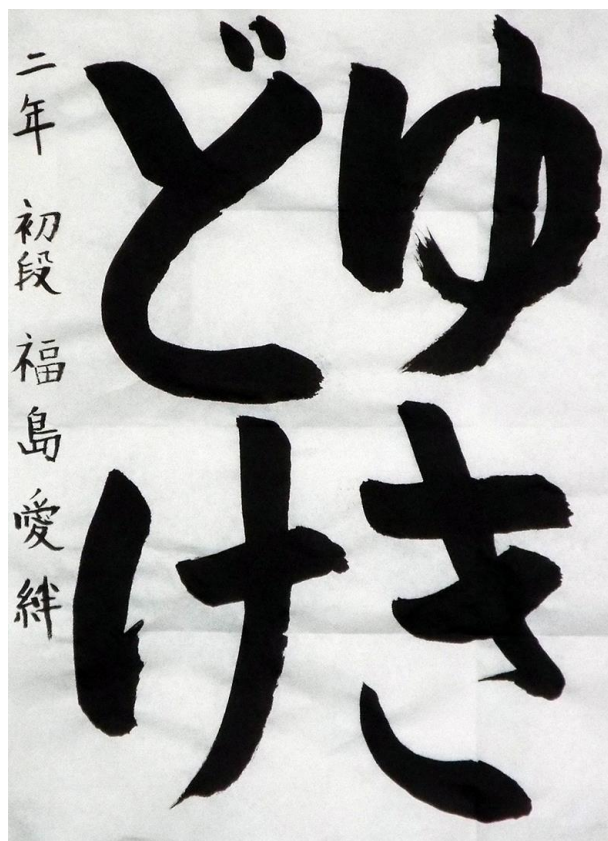 ゆき
どけ
二年 初段 福島愛絆